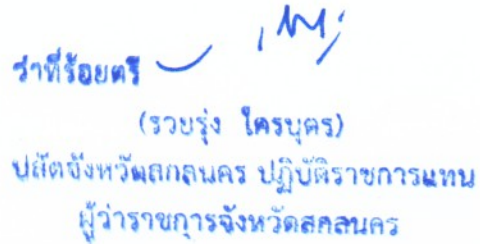 ว่าที่ร้อยตรี
(รวยรุ่ง ใครบุตร)
ปลัดจังหวัดสกลนคร ปฏิบัติราชการแทน
ผู้ว่าราชการจังหวัดสกลนคร